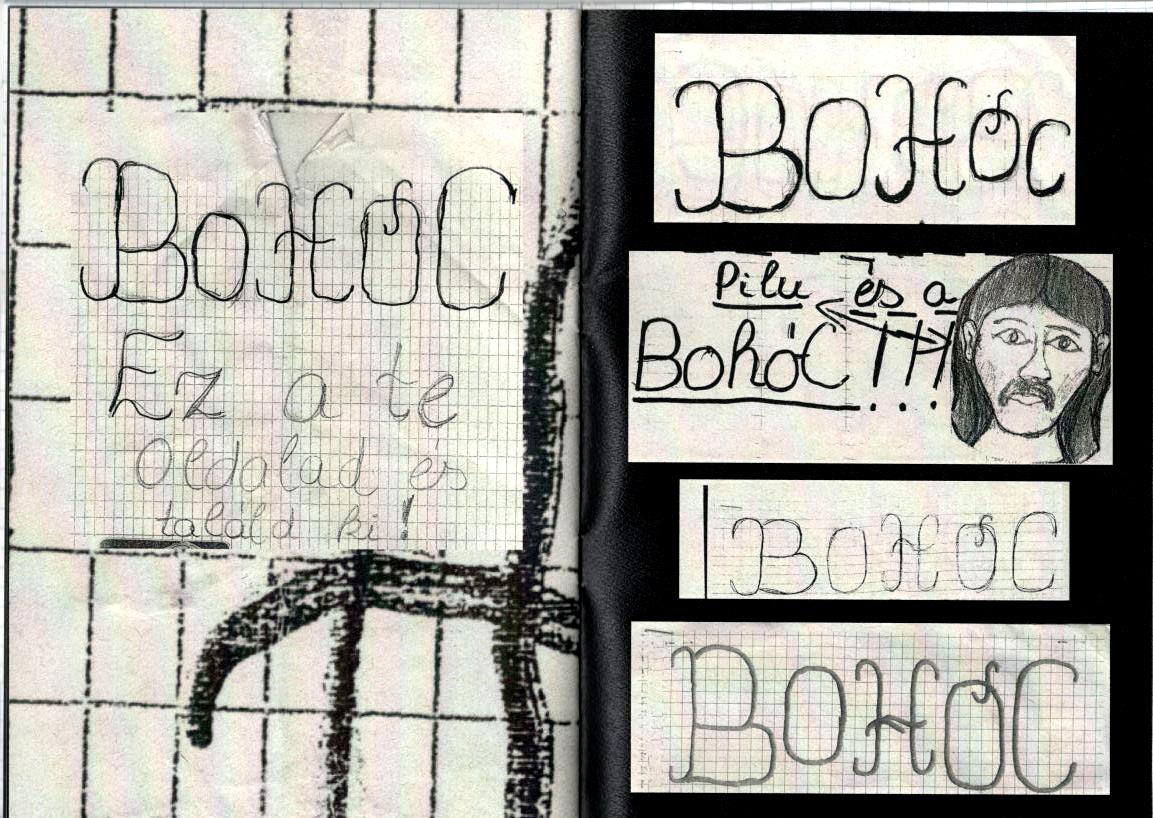 BoHÓC
Ez a te
Oldalad és
találd ki!
BOHÓC
Pilu és a
BohóC!!!
BOHÓC
BOHÓC